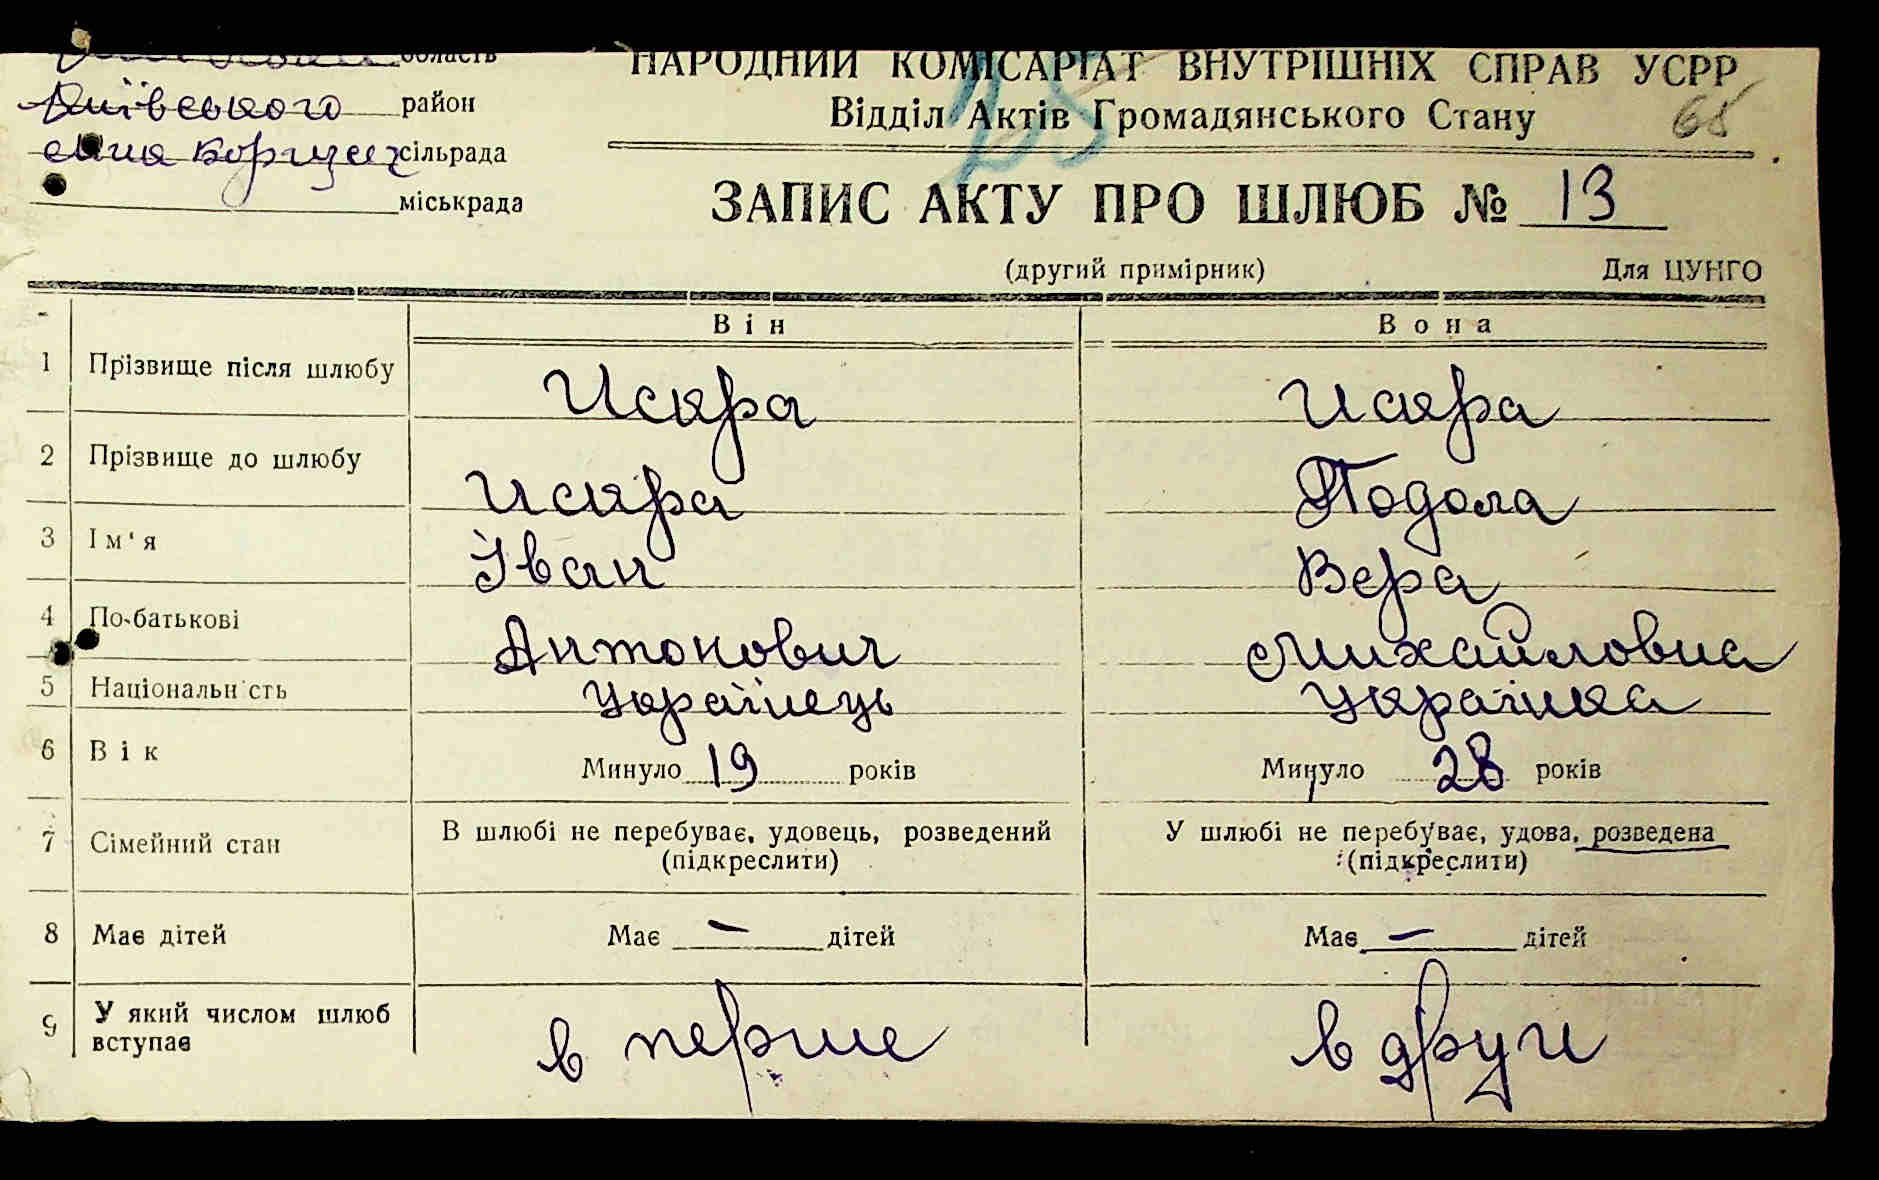 область
Київського район
сільрада
міськрада
НАРОДНИЙ КОМІСАРІАТ ВНУТРІШНІХ СПРАВ УСРР
Відділ Актів Громадянського Стану
25
68
ЗАПИС АКТУ ПРО ШЛЮБ № 13
(другий примірник) Для ЦУНГО
Він Вона
1 Прізвище після шлюбу Искра Искра
2 Прізвище до шлюбу Искра Подола
3 Ім'я Іван Вера
4 По-батькові Антонович Михайловна
5 Національність Українець Українка
6 Вік Минуло 19 років Минуло 28 років
7 Сімейний стан В шлюбі не перебуває, удовець, розведений У шлюбі не перебуває, удова, розведена
(підкреслити) (підкреслити)
8 Має дітей Має — дітей Має — дітей
9 У який числом шлюб
вступає в перше в други